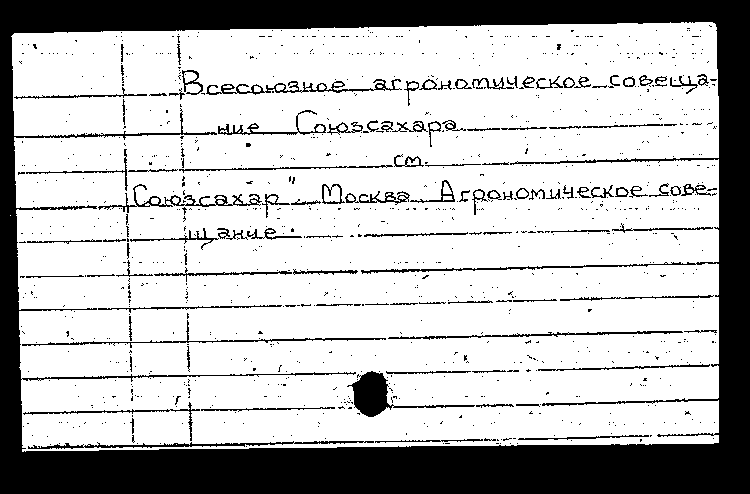 Всесоюзное агрономическое совеща-
ние Союзсахара
см.
Союзсахар". Москва. Агрономическое сове-
щание.